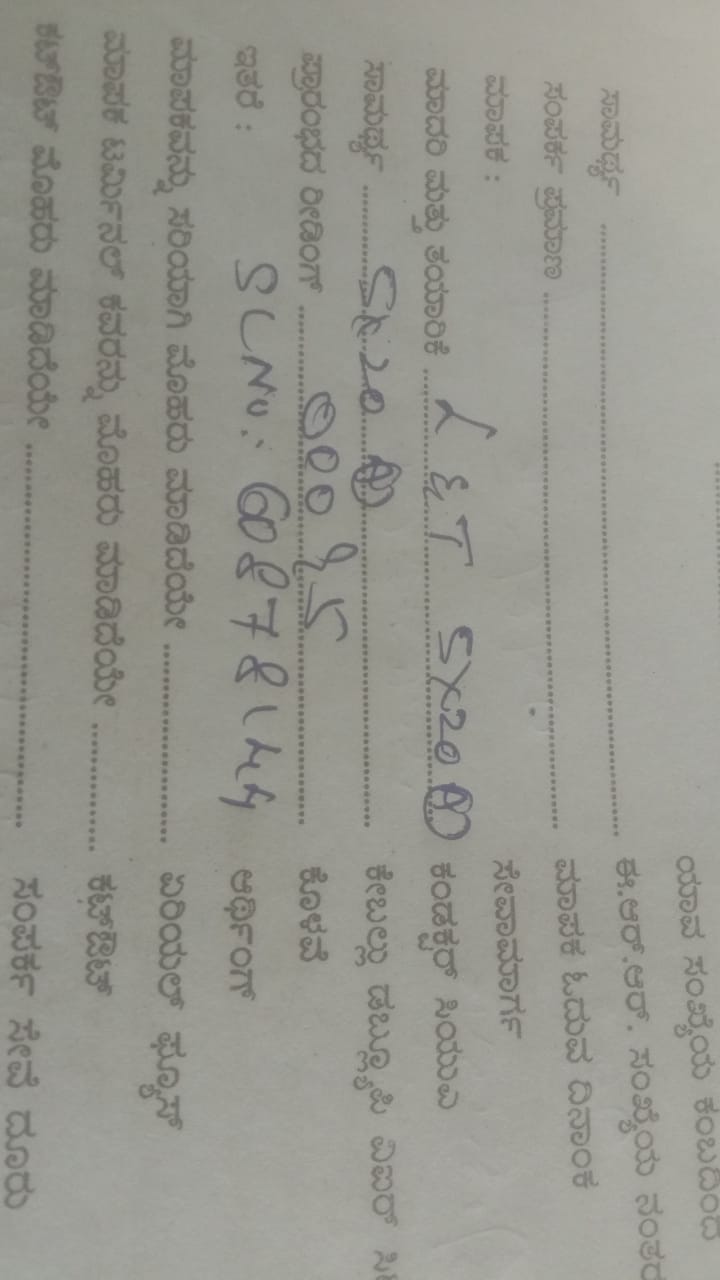 ಯಾವ ಸಂಖ್ಯೆಯ ಕಂಬದಿಂದ
ಸಾಮರ್ಥ್ಯ ........ ಈ.ಆರ್.ಆರ್. ಸಂಖ್ಯೆಯ ನಂತರ
ಸಂಪರ್ಕ ಪ್ರಮಾಣ ........ ಮಾಪಕ ಓದುವ ದಿನಾಂಕ
ಮಾಪಕ : ಸೇವಾಮಾರ್ಗ
ಮಾದರಿ ಮತ್ತು ತಯಾರಿಕೆ ........ L&T 5X20 A ಕಂಡಕ್ಟರ್ ಸಿಯುವಿ
ಸಾಮರ್ಥ್ಯ ........ 5X20 A ಕೇಬಲ್ಲು ಡಬ್ಲ್ಯುಪಿ ವಿಐಆರ್
ಪ್ರಾರಂಭದ ರೀಡಿಂಗ್ ........ 00095 ಕೊಳವೆ
ಇತರೆ : SLNo: 60878144 ಅರ್ಥಿಂಗ್
ಮಾಪಕವನ್ನು ಸರಿಯಾಗಿ ಮೊಹರು ಮಾಡಿದೆಯೇ ........ ಏರಿಯಲ್ ಫ್ಯೂಸ್
ಮಾಪಕ ಟರ್ಮಿನಲ್ ಕವರನ್ನು ಮೊಹರು ಮಾಡಿದೆಯೇ ........ ಕಟ್‌ಔಟ್
ಕಟ್‌ಔಟ್ ಮೊಹರು ಮಾಡಿದೆಯೇ ........ ಸಂಪರ್ಕ ಸೇವೆ ದೂರು